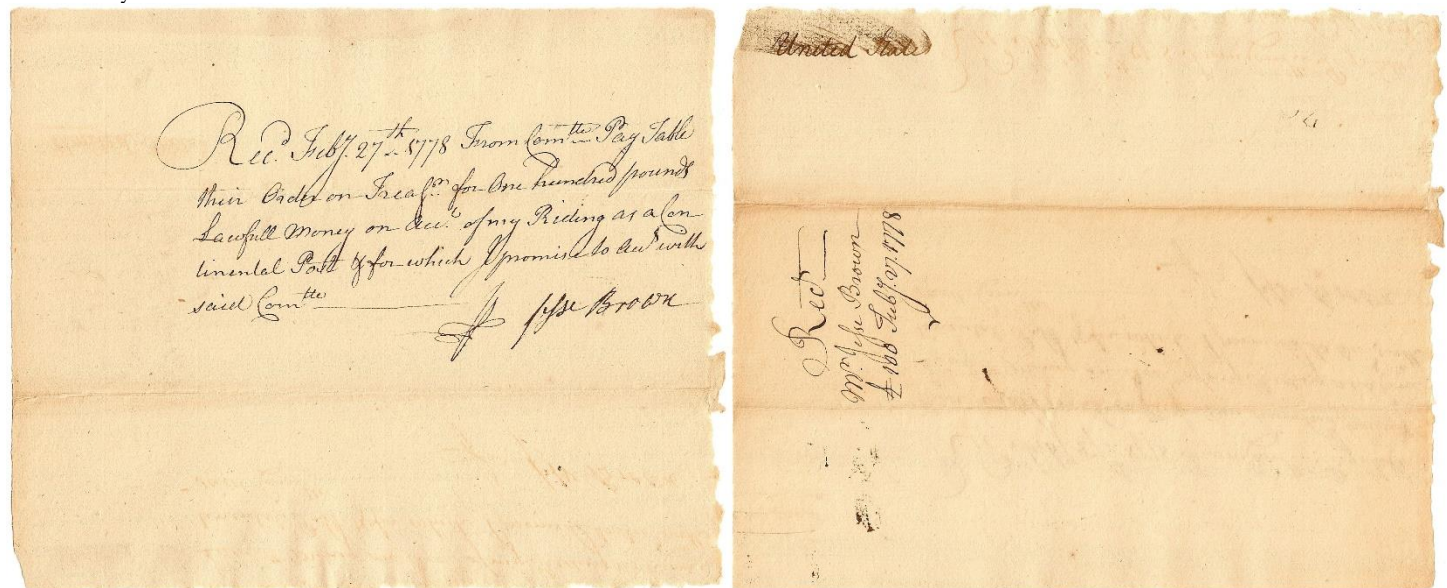 Recd. Feby. 27th 1778 From Comtte Pay Table
their Order on Treasr for One hundred pounds
Lawfull Money on Acct. of my Riding as a Con
tinental Post & for which I promise to Acct with
said Comtte
Jesse Brown
United State
Recd
Mr. Jesse Brown
£100 Feby. 27. 1778